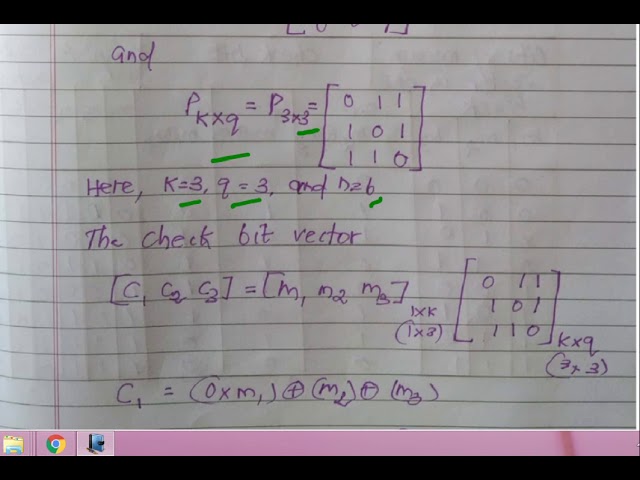 and
P K×q = P 3×3 = [ 0 1 1
1 0 1
1 1 0 ]
Here, K=3, q = 3, and n=6
The check bit vector
[C1 C2 C3] = [m1 m2 m3] 1×K (1×3) [ 0 1 1
1 0 1
1 1 0 ] K×q (3×3)
C1 = (0×m1) ⊕ (m2) ⊕ (m3)